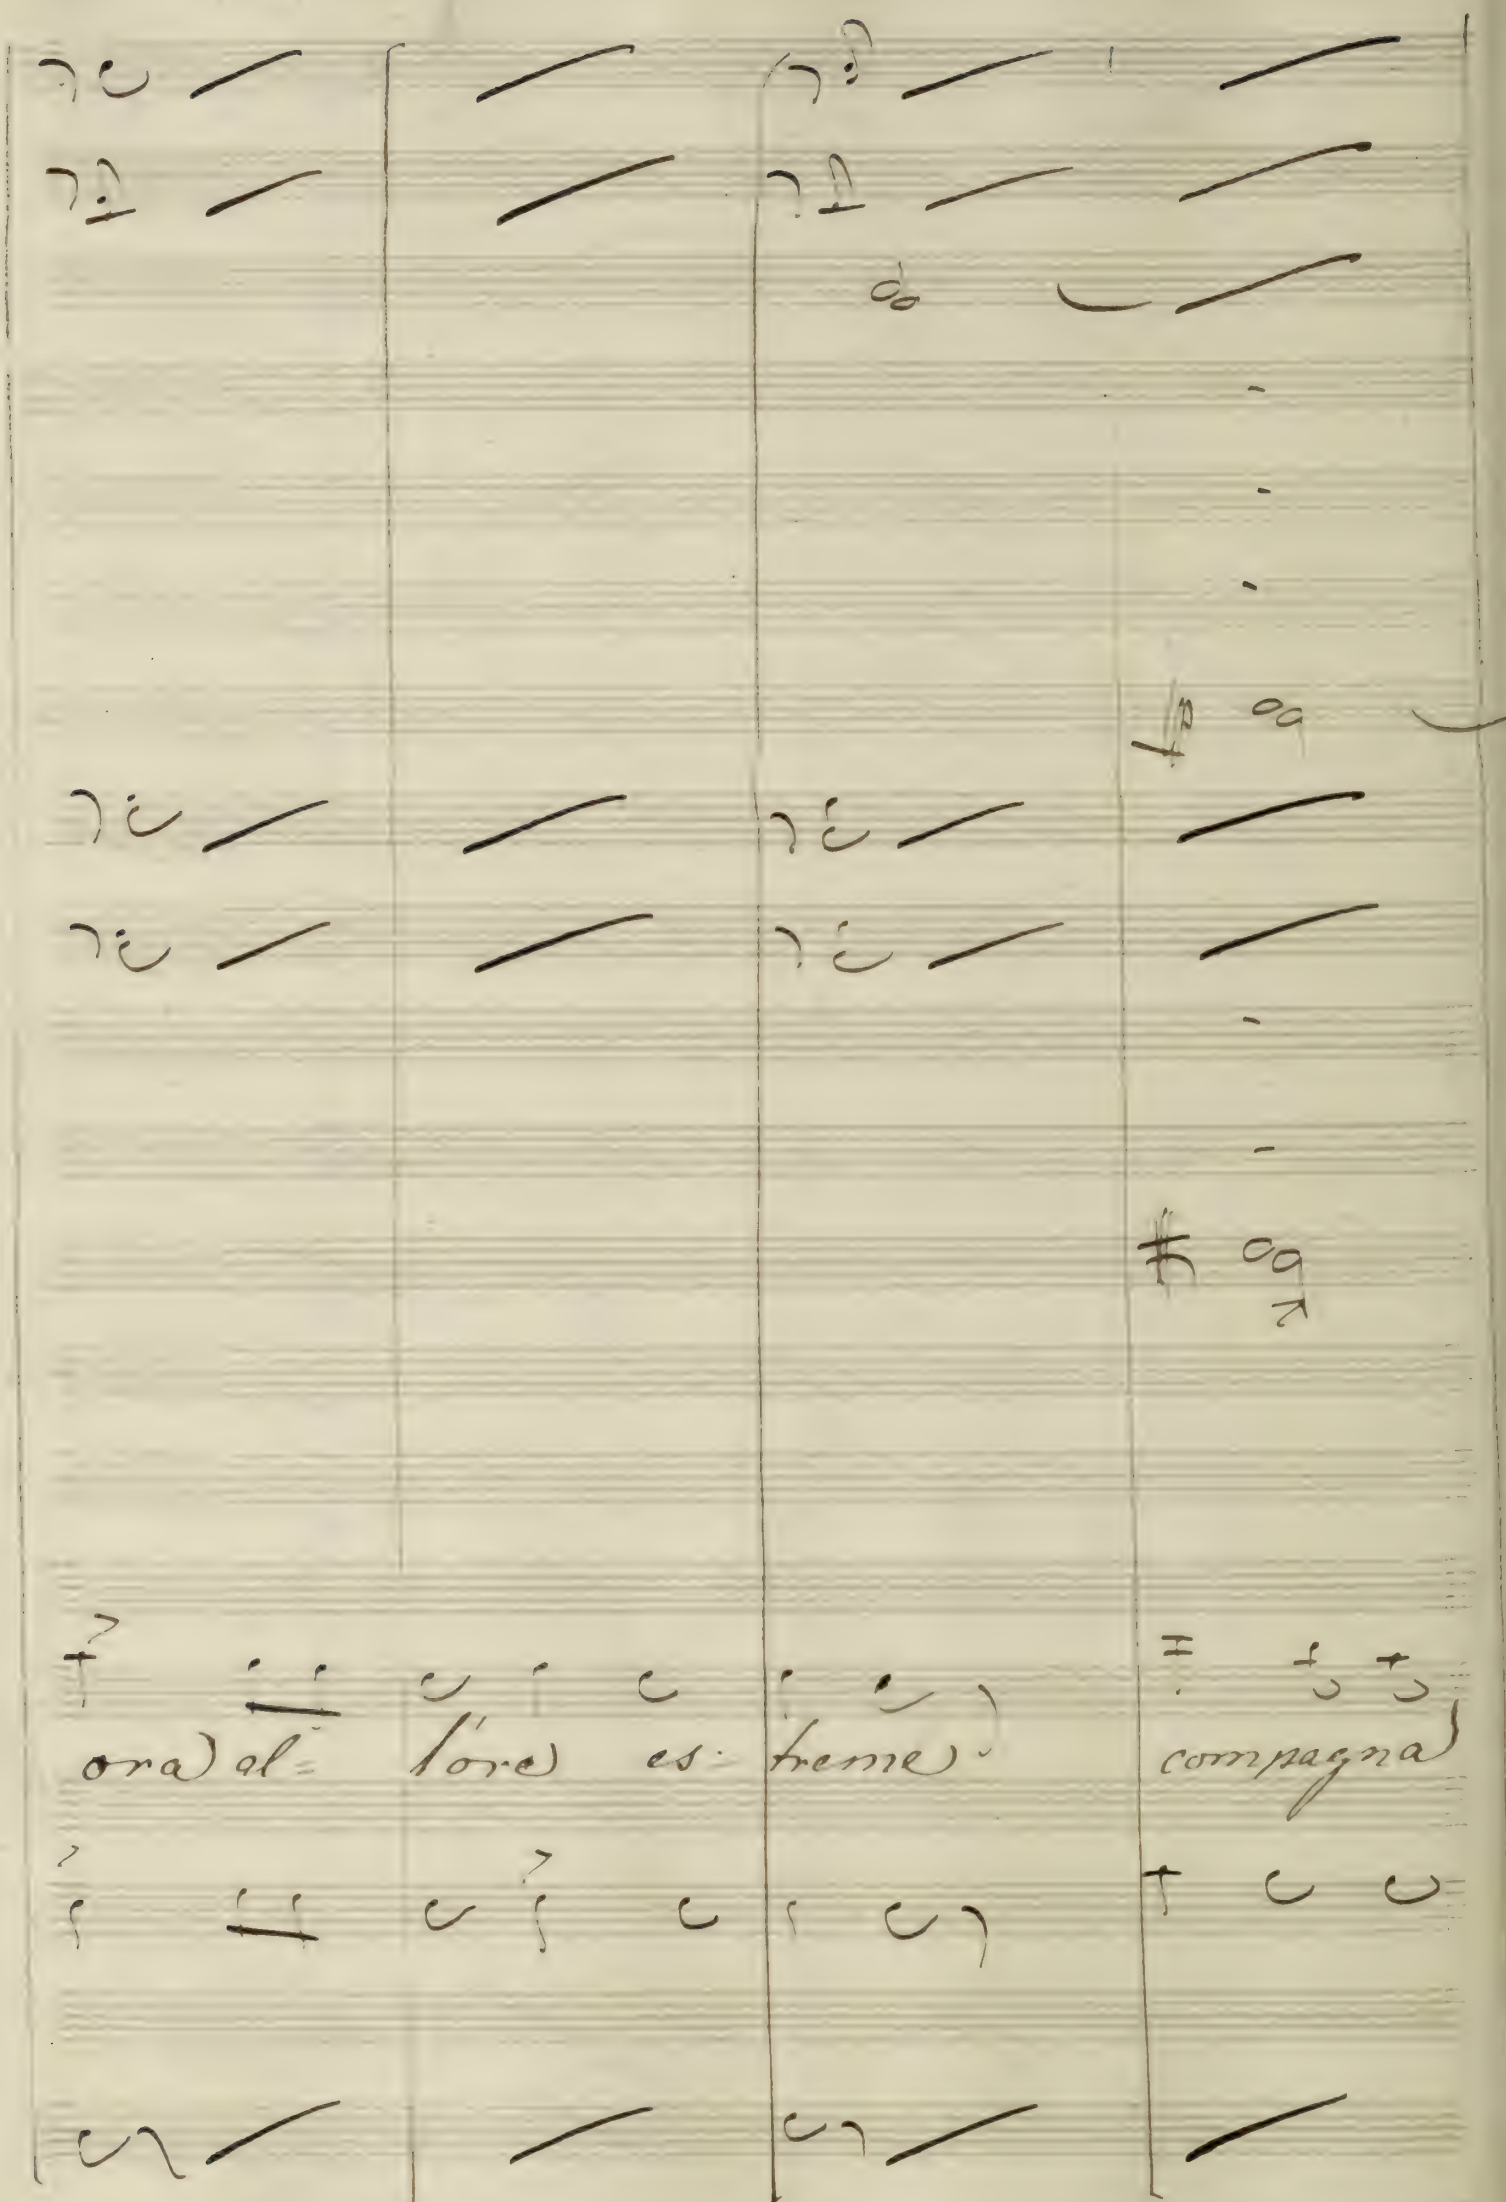 ora al= l'ore es- treme. compagna